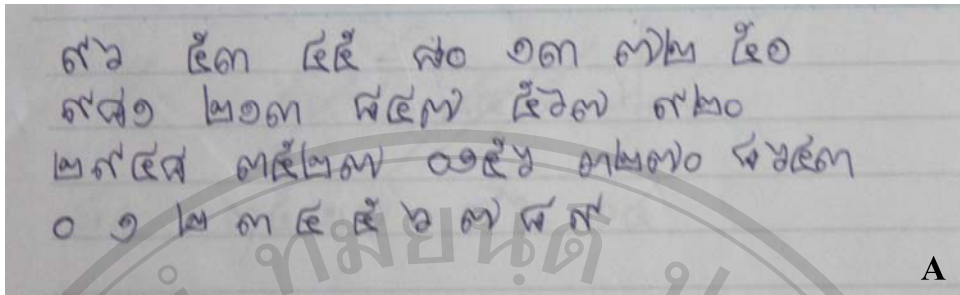 ๙๖ ๕๓ ๔๕ ๘๐ ๑๓ ๗๒ ๕๐
๙๘๑ ๒๑๓ ๘๔๗ ๕๖๗ ๙๒๐
๒๙๔๘ ๓๕๒๗ ๐๑๕๖ ๓๒๗๐ ๘๖๔๓
๐ ๑ ๒ ๓ ๔ ๕ ๖ ๗ ๘ ๙
A